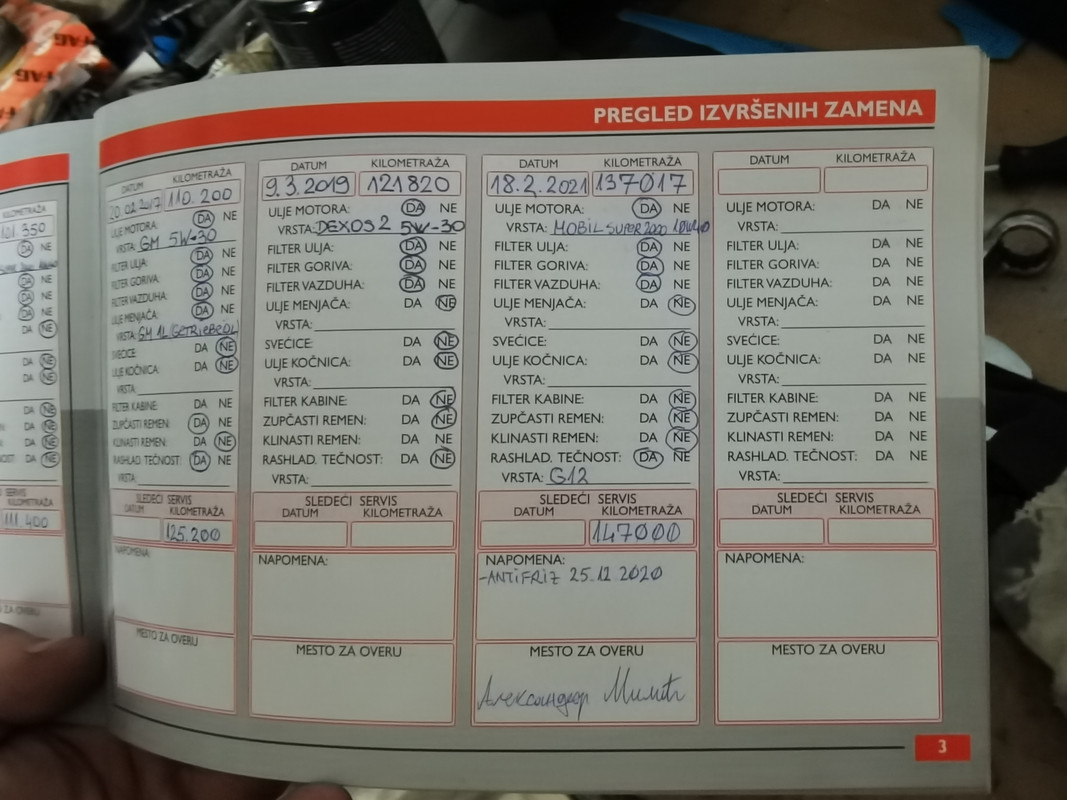 FAG
PREGLED IZVRŠENIH ZAMENA
KILOMETRAŽA
101 350
DA NE
DA NE
DA NE
DA NE
DA NE
DA NE
DA NE
DA NE
DA NE
DA NE
NOST: DA NE
SERVIS
KILOMETRAŽA
111.400
ZA OVERU
DATUM KILOMETRAŽA
20.02.2017 110.200
ULJE MOTORA: DA NE
VRSTA: GM 5W-30
FILTER ULJA: DA NE
FILTER GORIVA: DA NE
FILTER VAZDUHA: DA NE
ULJE MENJAČA: DA NE
VRSTA: GM 1L (GETRIEBEÖL)
SVEĆICE: DA NE
ULJE KOČNICA: DA NE
VRSTA:
FILTER KABINE: DA NE
ZUPČASTI REMEN: DA NE
KLINASTI REMEN: DA NE
RASHLAD. TEČNOST: DA NE
VRSTA:
SLEDEĆI SERVIS
DATUM KILOMETRAŽA
125.200
NAPOMENA:
MESTO ZA OVERU
DATUM KILOMETRAŽA
9.3.2019 121820
ULJE MOTORA: DA NE
VRSTA: DEXOS2 5W-30
FILTER ULJA: DA NE
FILTER GORIVA: DA NE
FILTER VAZDUHA: DA NE
ULJE MENJAČA: DA NE
VRSTA:
SVEĆICE: DA NE
ULJE KOČNICA: DA NE
VRSTA:
FILTER KABINE: DA NE
ZUPČASTI REMEN: DA NE
KLINASTI REMEN: DA NE
RASHLAD. TEČNOST: DA NE
VRSTA:
SLEDEĆI SERVIS
DATUM KILOMETRAŽA
NAPOMENA:
MESTO ZA OVERU
DATUM KILOMETRAŽA
18.2.2021 137017
ULJE MOTORA: DA NE
VRSTA: MOBIL SUPER 2000 10W40
FILTER ULJA: DA NE
FILTER GORIVA: DA NE
FILTER VAZDUHA: DA NE
ULJE MENJAČA: DA NE
VRSTA:
SVEĆICE: DA NE
ULJE KOČNICA: DA NE
VRSTA:
FILTER KABINE: DA NE
ZUPČASTI REMEN: DA NE
KLINASTI REMEN: DA NE
RASHLAD. TEČNOST: DA NE
VRSTA: G12
SLEDEĆI SERVIS
DATUM KILOMETRAŽA
147000
NAPOMENA:
-ANTIFRIZ 25.12.2020
MESTO ZA OVERU
Александар Милић
DATUM KILOMETRAŽA
ULJE MOTORA: DA NE
VRSTA:
FILTER ULJA: DA NE
FILTER GORIVA: DA NE
FILTER VAZDUHA: DA NE
ULJE MENJAČA: DA NE
VRSTA:
SVEĆICE: DA NE
ULJE KOČNICA: DA NE
VRSTA:
FILTER KABINE: DA NE
ZUPČASTI REMEN: DA NE
KLINASTI REMEN: DA NE
RASHLAD. TEČNOST: DA NE
VRSTA:
SLEDEĆI SERVIS
DATUM KILOMETRAŽA
NAPOMENA:
MESTO ZA OVERU
3